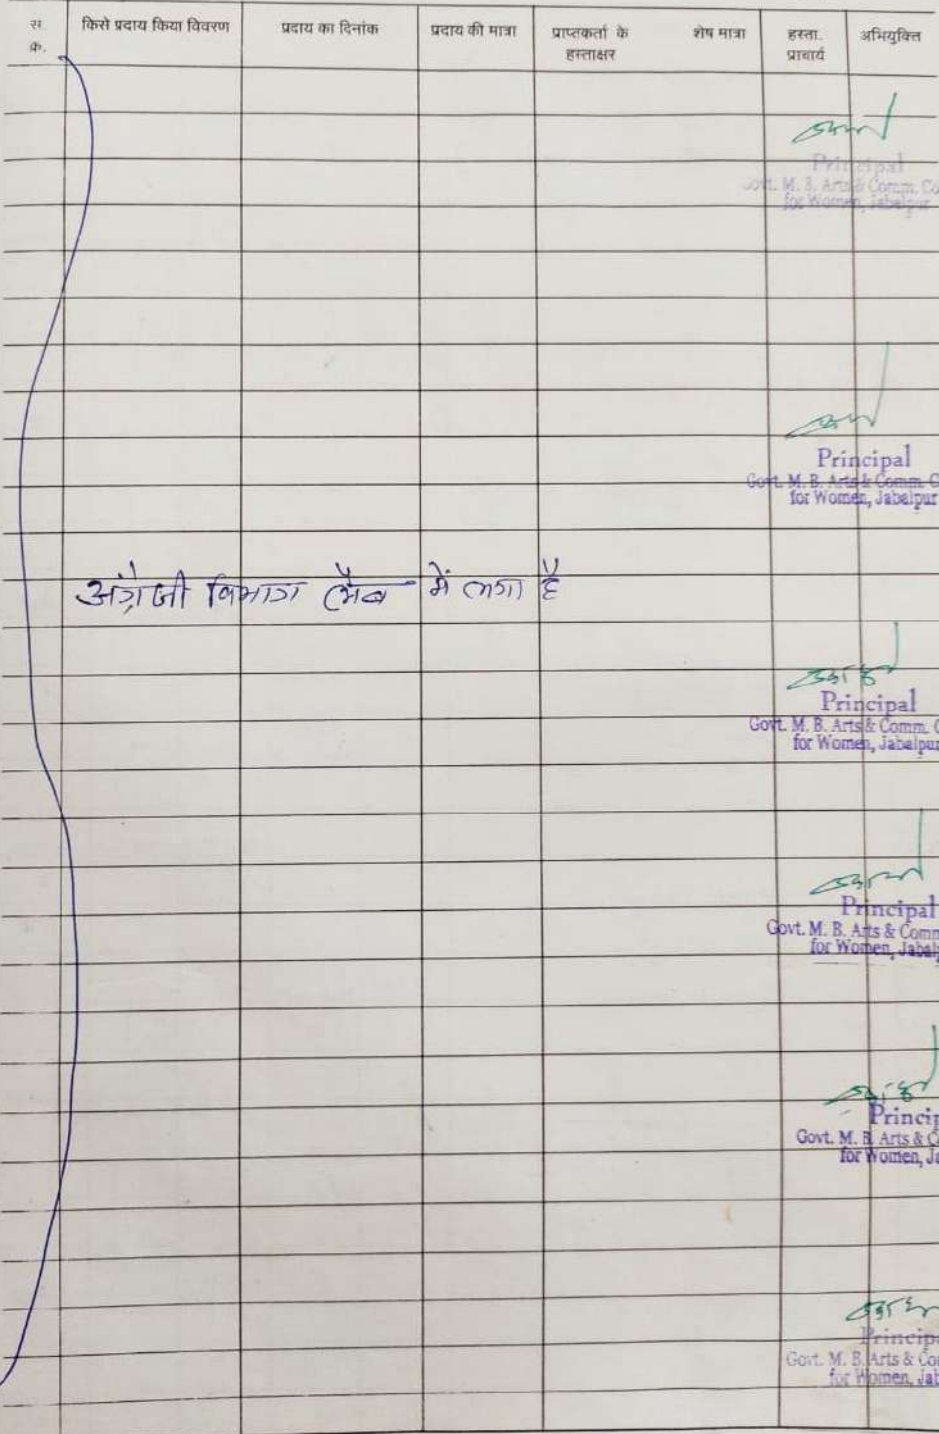 स. क्र. किसे प्रदाय किया विवरण प्रदाय का दिनांक प्रदाय की मात्रा प्राप्तकर्ता के हस्ताक्षर शेष मात्रा हस्ता. प्राचार्य अभियुक्ति
Principal
Govt. M. B. Arts & Comm. Co
for Women, Jabalpur
Principal
Govt. M. B. Arts & Comm. C
for Women, Jabalpur
अंग्रेजी विभाग लैब में लगा है
Principal
Govt. M. B. Arts & Comm. C
for Women, Jabalpur
Principal
Govt. M. B. Arts & Comm
for Women, Jabalp
Princip
Govt. M. B. Arts & C
for Women, Ja
Principa
Govt. M. B. Arts & Co
for Women, Jab